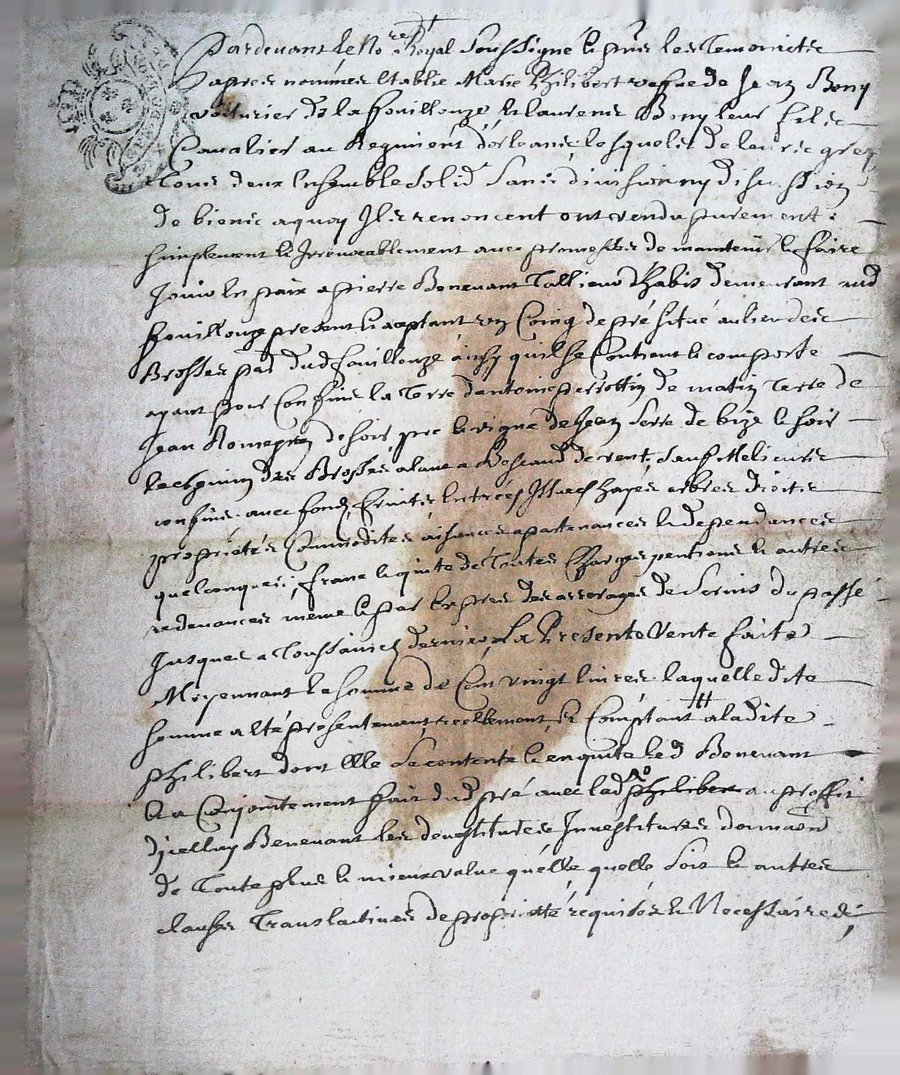 Pardevant le No.re Royal soussigné & pnts les temoins
apres nommés Establie Marie Philibert vefve de Jean Bony
voiturier de la fouillouze & laurens Bony leur fils
Cavalier au Regiment d'orleans, lesquels de leur gré
tous deux Ensemble solid. sans division ny discussion
de biens a quoy Ils renoncent ont vendu purement
simplement & Irrevocablement avec promesses de maintenir & faire
Jouir En paix a pierre Benevant Tallieur d'habis demeurant aud
fouillouze present & acceptant un Coing de pré situé au lieu des
Brosses pss dud fouillouze ainsy quil se Contient & comporte
ayant pour Confins la Terre d'antoine perrottin de matin Terre de
Jean Romeyron de soir, pré & vigne de Jean serre de bize & soir
le chemin des Brosses alant a de vent, sauf Melieurs
confins avec fonds, fruits, Entrées Issues hayes arbres droits
proprietés Commodites aisances apartenances & dependances
quelconques, franc & quitte de Toutes Charges pentions & autres
redevances meme & par Exprés des arrerages de servis du passé
Jusques a Toussaincts dernier, La Presente Vente faite
Moyennant la somme de Cent vingt livres laquelle dite
somme a Eté presentement reellement & Comptant a ladite
philibert dont Elle se contente & en quite led Benevant
& a Conjointement fait dud pré avec lad philibert au proffit
d'icelluy Benevant les devestitures Investitures donnaõn
de Toute plus & mieux value qu'elle quelle soit & autres
clauses Translatives de proprieté requises & Necessaires;